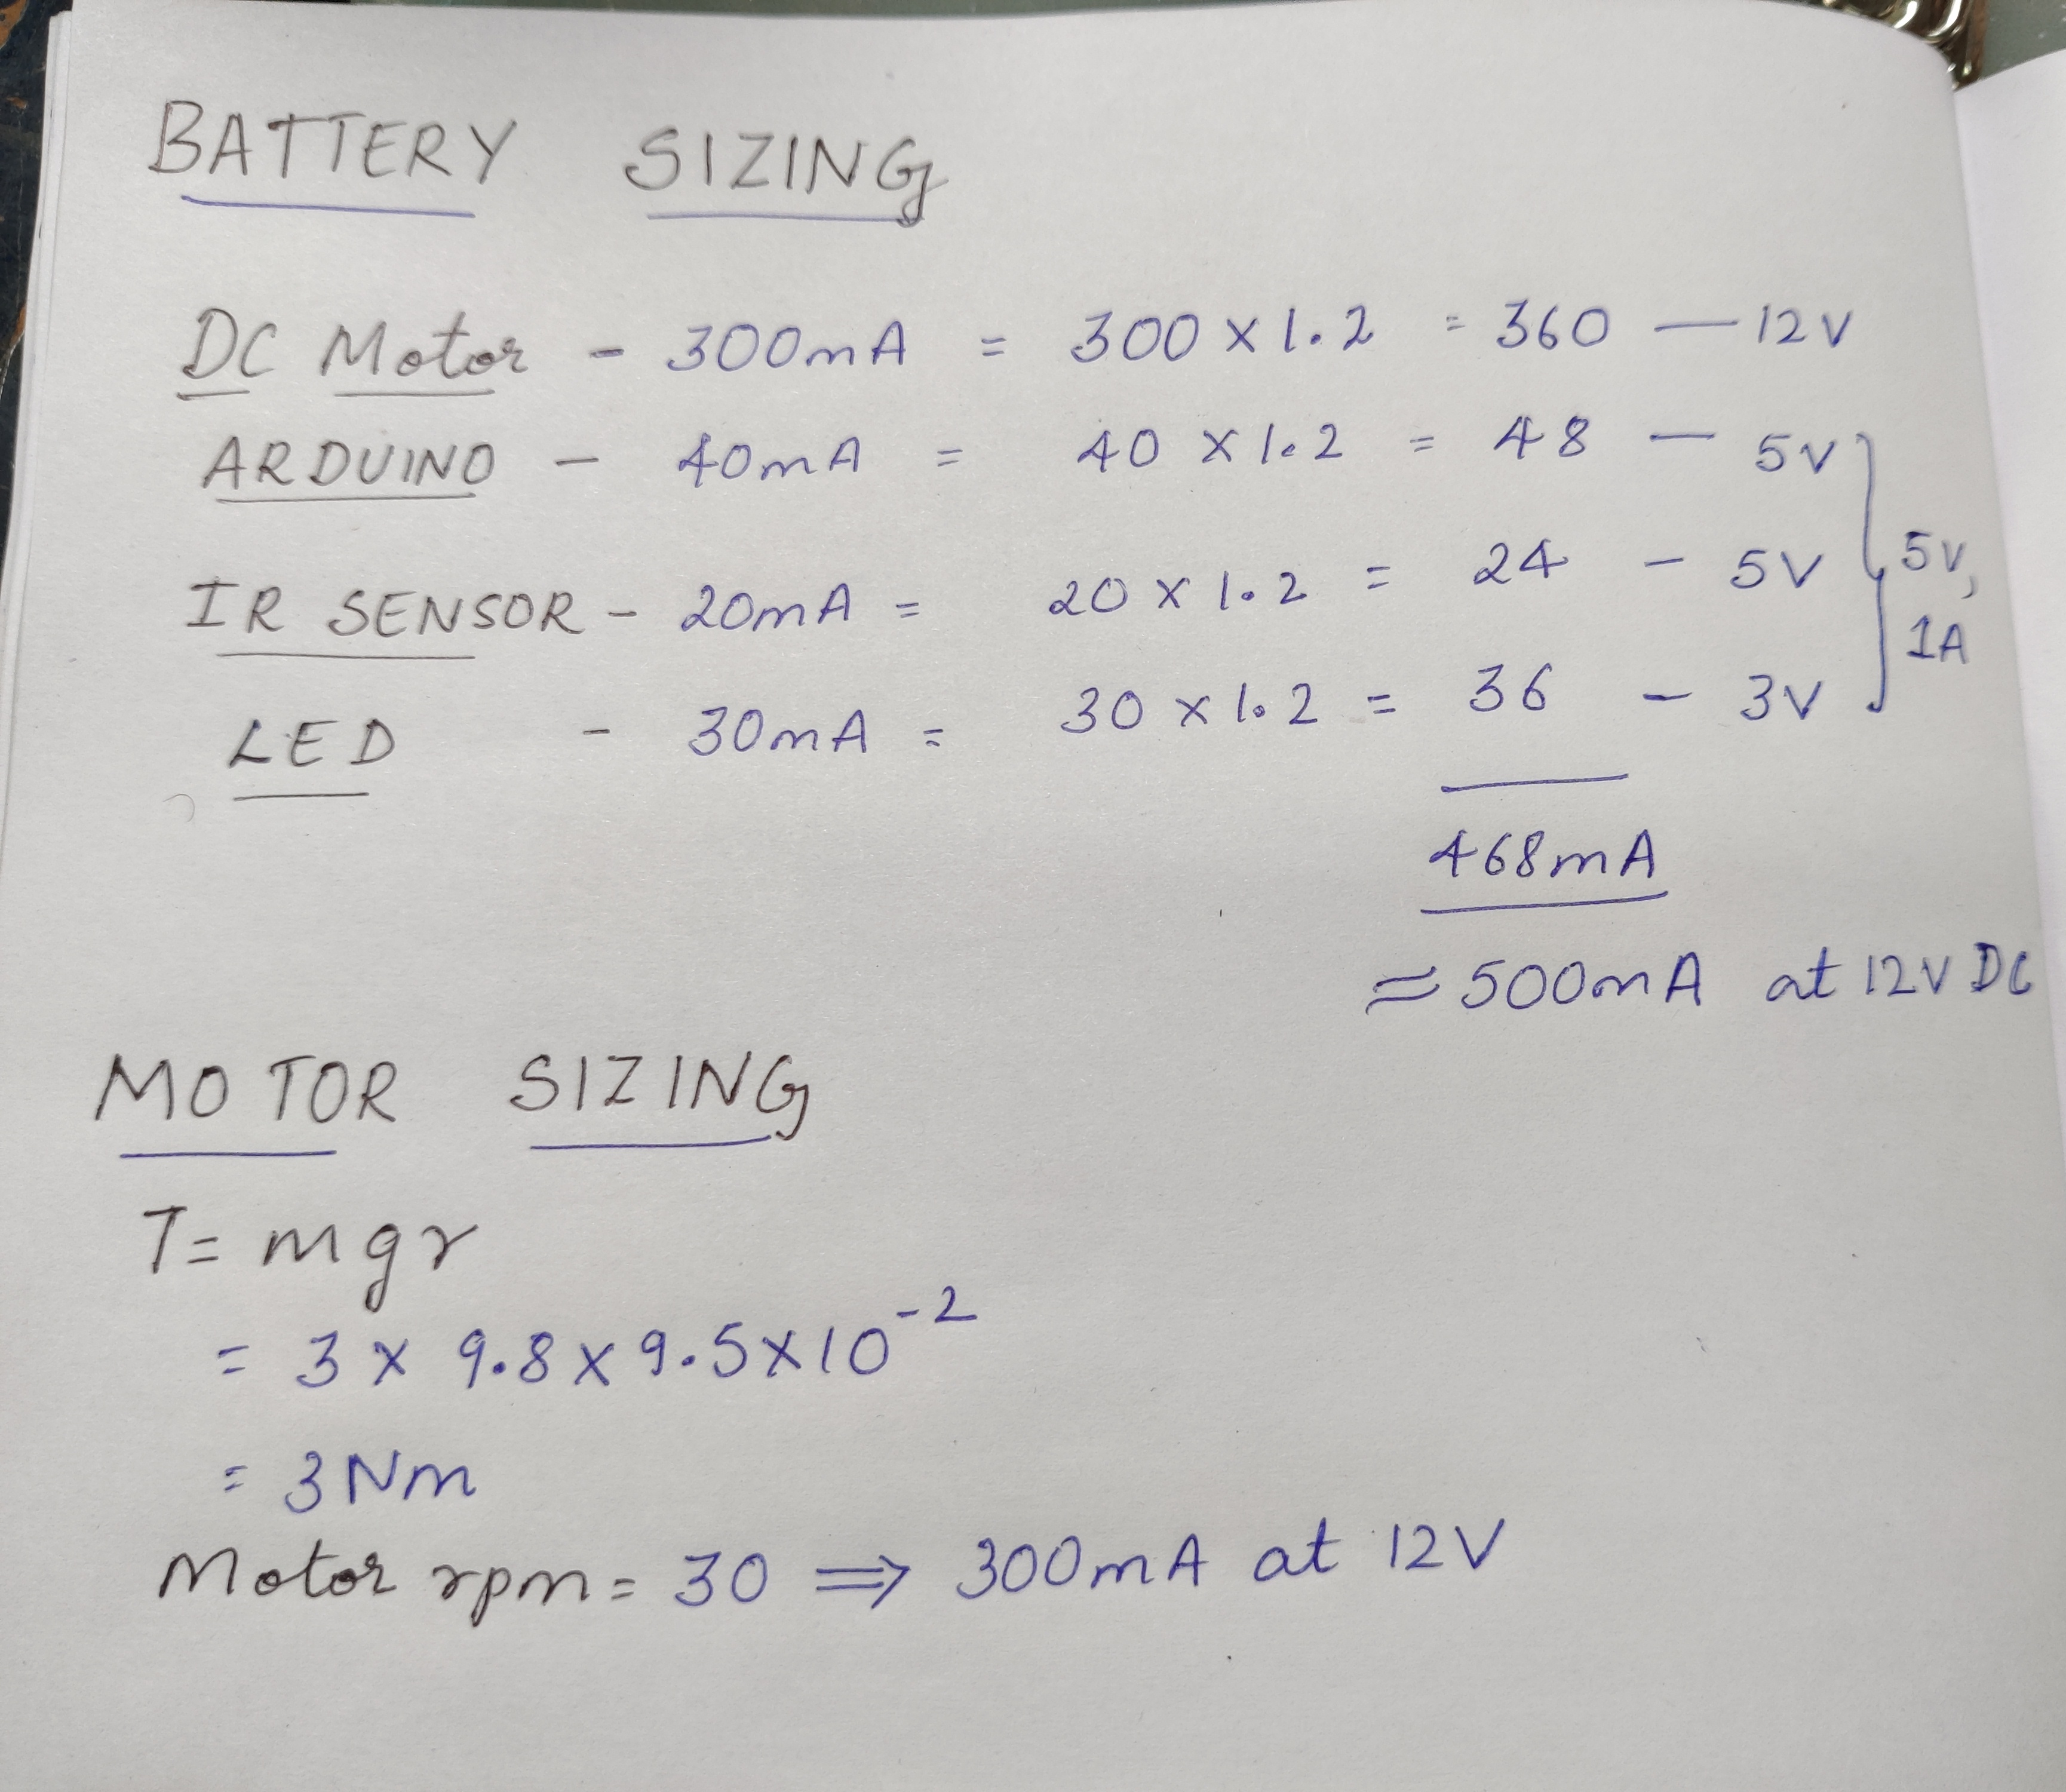 BATTERY SIZING
DC Motor - 300mA = 300 x 1.2 = 360 — 12V
ARDUINO - 40mA = 40 x 1.2 = 48 - 5V
IR SENSOR - 20mA = 20 x 1.2 = 24 - 5V
5V,
1A
LED - 30mA = 30 x 1.2 = 36 - 3V
468mA
≈ 500mA at 12V DC
MOTOR SIZING
T= mgr
= 3 x 9.8 x 9.5 x 10⁻²
= 3Nm
Motor rpm = 30 ⇒ 300mA at 12V